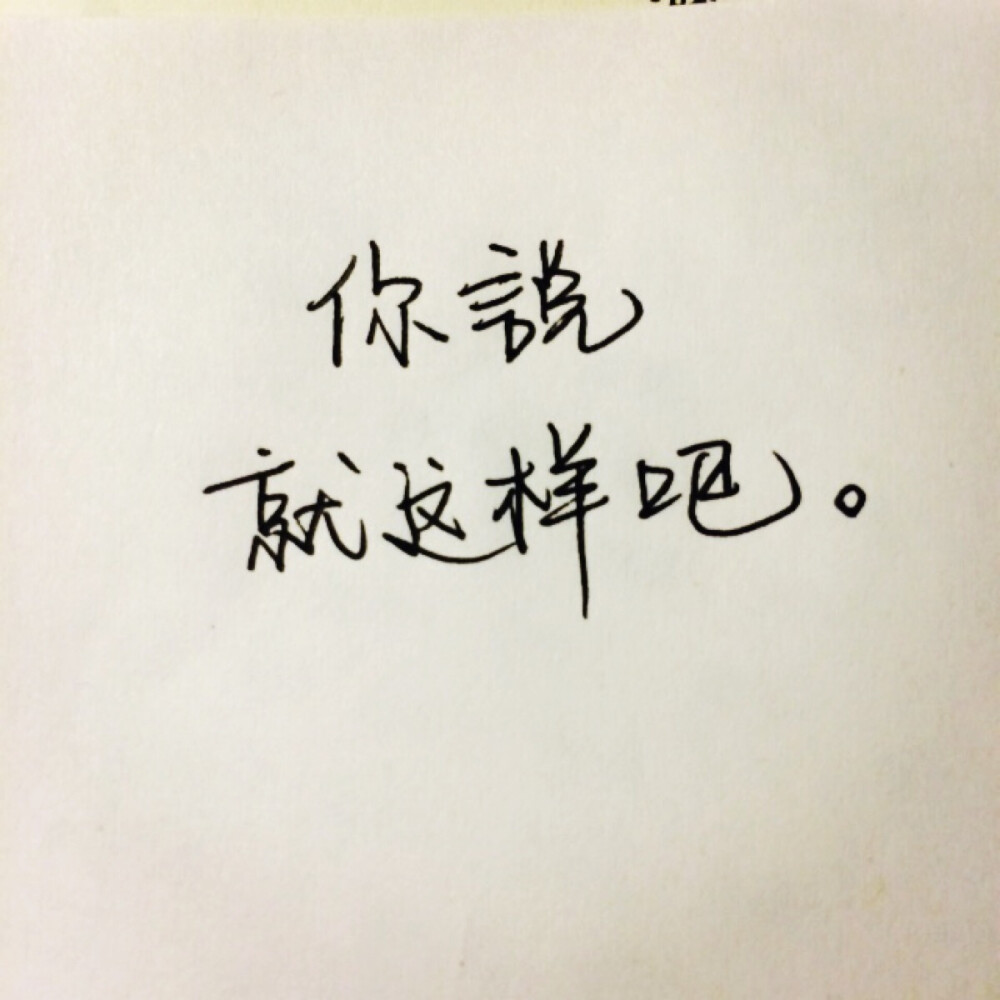 你說
就这样吧。